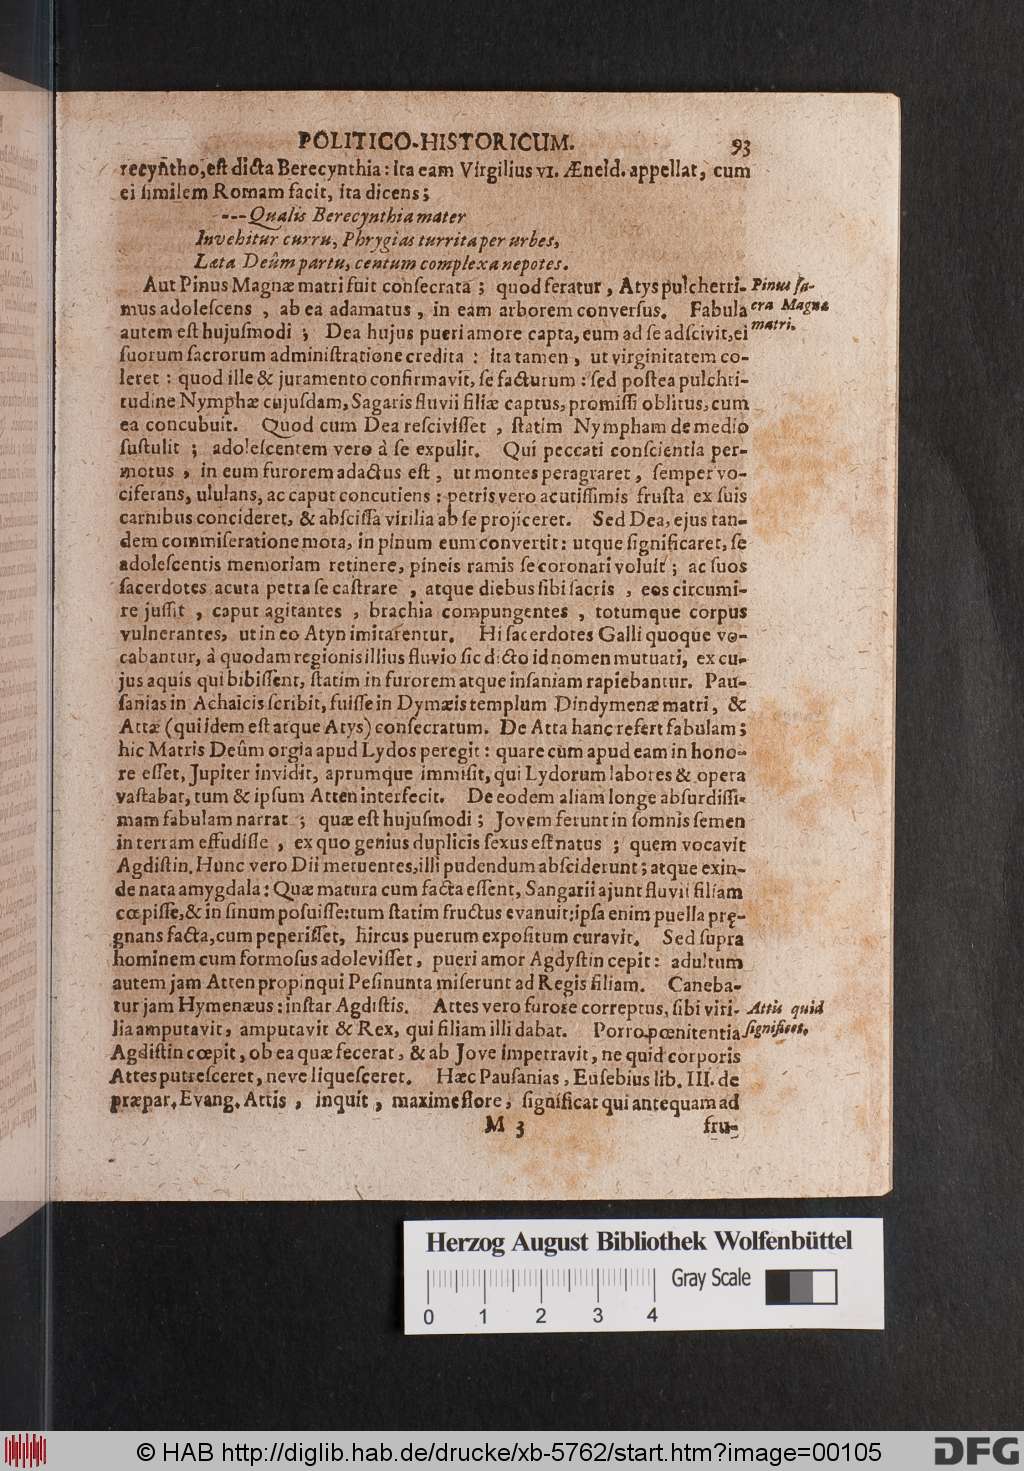 POLITICO-HISTORICUM. 93
recyntho, est dicta Berecynthia: ita eam Virgilius VI. Æneid. appellat, cum
ei similem Romam facit, ita dicens;
---Qualis Berecynthia mater
Invehitur curru, Phrygias turrita per urbes,
Læta Deûm partu, centum complexa nepotes.
Aut Pinus Magnæ matri fuit consecrata; quod feratur, Atys pulcherri-
mus adolescens, ab ea adamatus, in eam arborem conversus. Fabula
autem est hujusmodi; Dea hujus pueri amore capta, eum ad se adscivit, ei
suorum sacrorum administratione credita: ita tamen, ut virginitatem co-
leret: quod ille & juramento confirmavit, se facturum: sed postea pulchri-
tudine Nymphæ cujusdam, Sagaris fluvii filiæ captus, promissi oblitus, cum
ea concubuit. Quod cum Dea rescivisset, statim Nympham de medio
sustulit; adolescentem vero à se expulit. Qui peccati conscientia per-
motus, in eum furorem adactus est, ut montes peragraret, semper vo-
ciferans, ululans, ac caput concutiens: petris vero acutissimis frusta ex suis
carnibus concideret, & abscissa virilia ab se projiceret. Sed Dea, ejus tan-
dem commiseratione mota, in pinum eum convertit: utque significaret, se
adolescentis memoriam retinere, pineis ramis se coronari voluit; ac suos
sacerdotes acuta petra se castrare, atque diebus sibi sacris, eos circumi-
re jussit, caput agitantes, brachia compungentes, totumque corpus
vulnerantes, ut in eo Atyn imitarentur. Hi sacerdotes Galli quoque vo-
cabantur, à quodam regionis illius fluvio sic dicto id nomen mutuati, ex cu-
jus aquis qui bibissent, statim in furorem atque insaniam rapiebantur. Pau-
sanias in Achaicis scribit, fuisse in Dymæis templum Dindymenæ matri, &
Attæ (qui idem est atque Atys) consecratum. De Atta hanc refert fabulam;
hic Matris Deûm orgia apud Lydos peregit: quare cùm apud eam in hono-
re esset, Jupiter invidit, aprumque immisit, qui Lydorum labores & opera
vastabat, tum & ipsum Atten interfecit. De eodem aliam longe absurdissi-
mam fabulam narrat; quæ est hujusmodi; Jovem ferunt in somnis semen
in terram effudisse, ex quo genius duplicis sexus est natus; quem vocavit
Agdistin. Hunc vero Dii metuentes, illi pudendum absciderunt; atque exin-
de nata amygdala: Quæ matura cum facta essent, Sangarii ajunt fluvii filiam
cœpisse, & in sinum posuisse: tum statim fructus evanuit; ipsa enim puella prę-
gnans facta, cum peperisset, hircus puerum expositum curavit. Sed supra
hominem cum formosus adolevisset, pueri amor Agdystin cepit: adultum
autem jam Atten propinqui Pesinunta miserunt ad Regis filiam. Caneba-
tur jam Hymenæus: instar Agdistis. Attes vero furore correptus, sibi viri-
lia amputavit, amputavit & Rex, qui filiam illi dabat. Porro pœnitentia
Agdistin cœpit, ob ea quæ fecerat, & ab Jove impetravit, ne quid corporis
Attes putresceret, neve liquesceret. Hæc Pausanias, Eusebius lib. III. de
præpar. Evang. Attis, inquit, maxime flore, significat qui antequam ad
M 3 fru-
Pinus sa-
cra Magnæ
matri.
Attis quid
significet.
Herzog August Bibliothek Wolfenbüttel
Gray Scale
0 1 2 3 4
© HAB http://diglib.hab.de/drucke/xb-5762/start.htm?image=00105
DFG